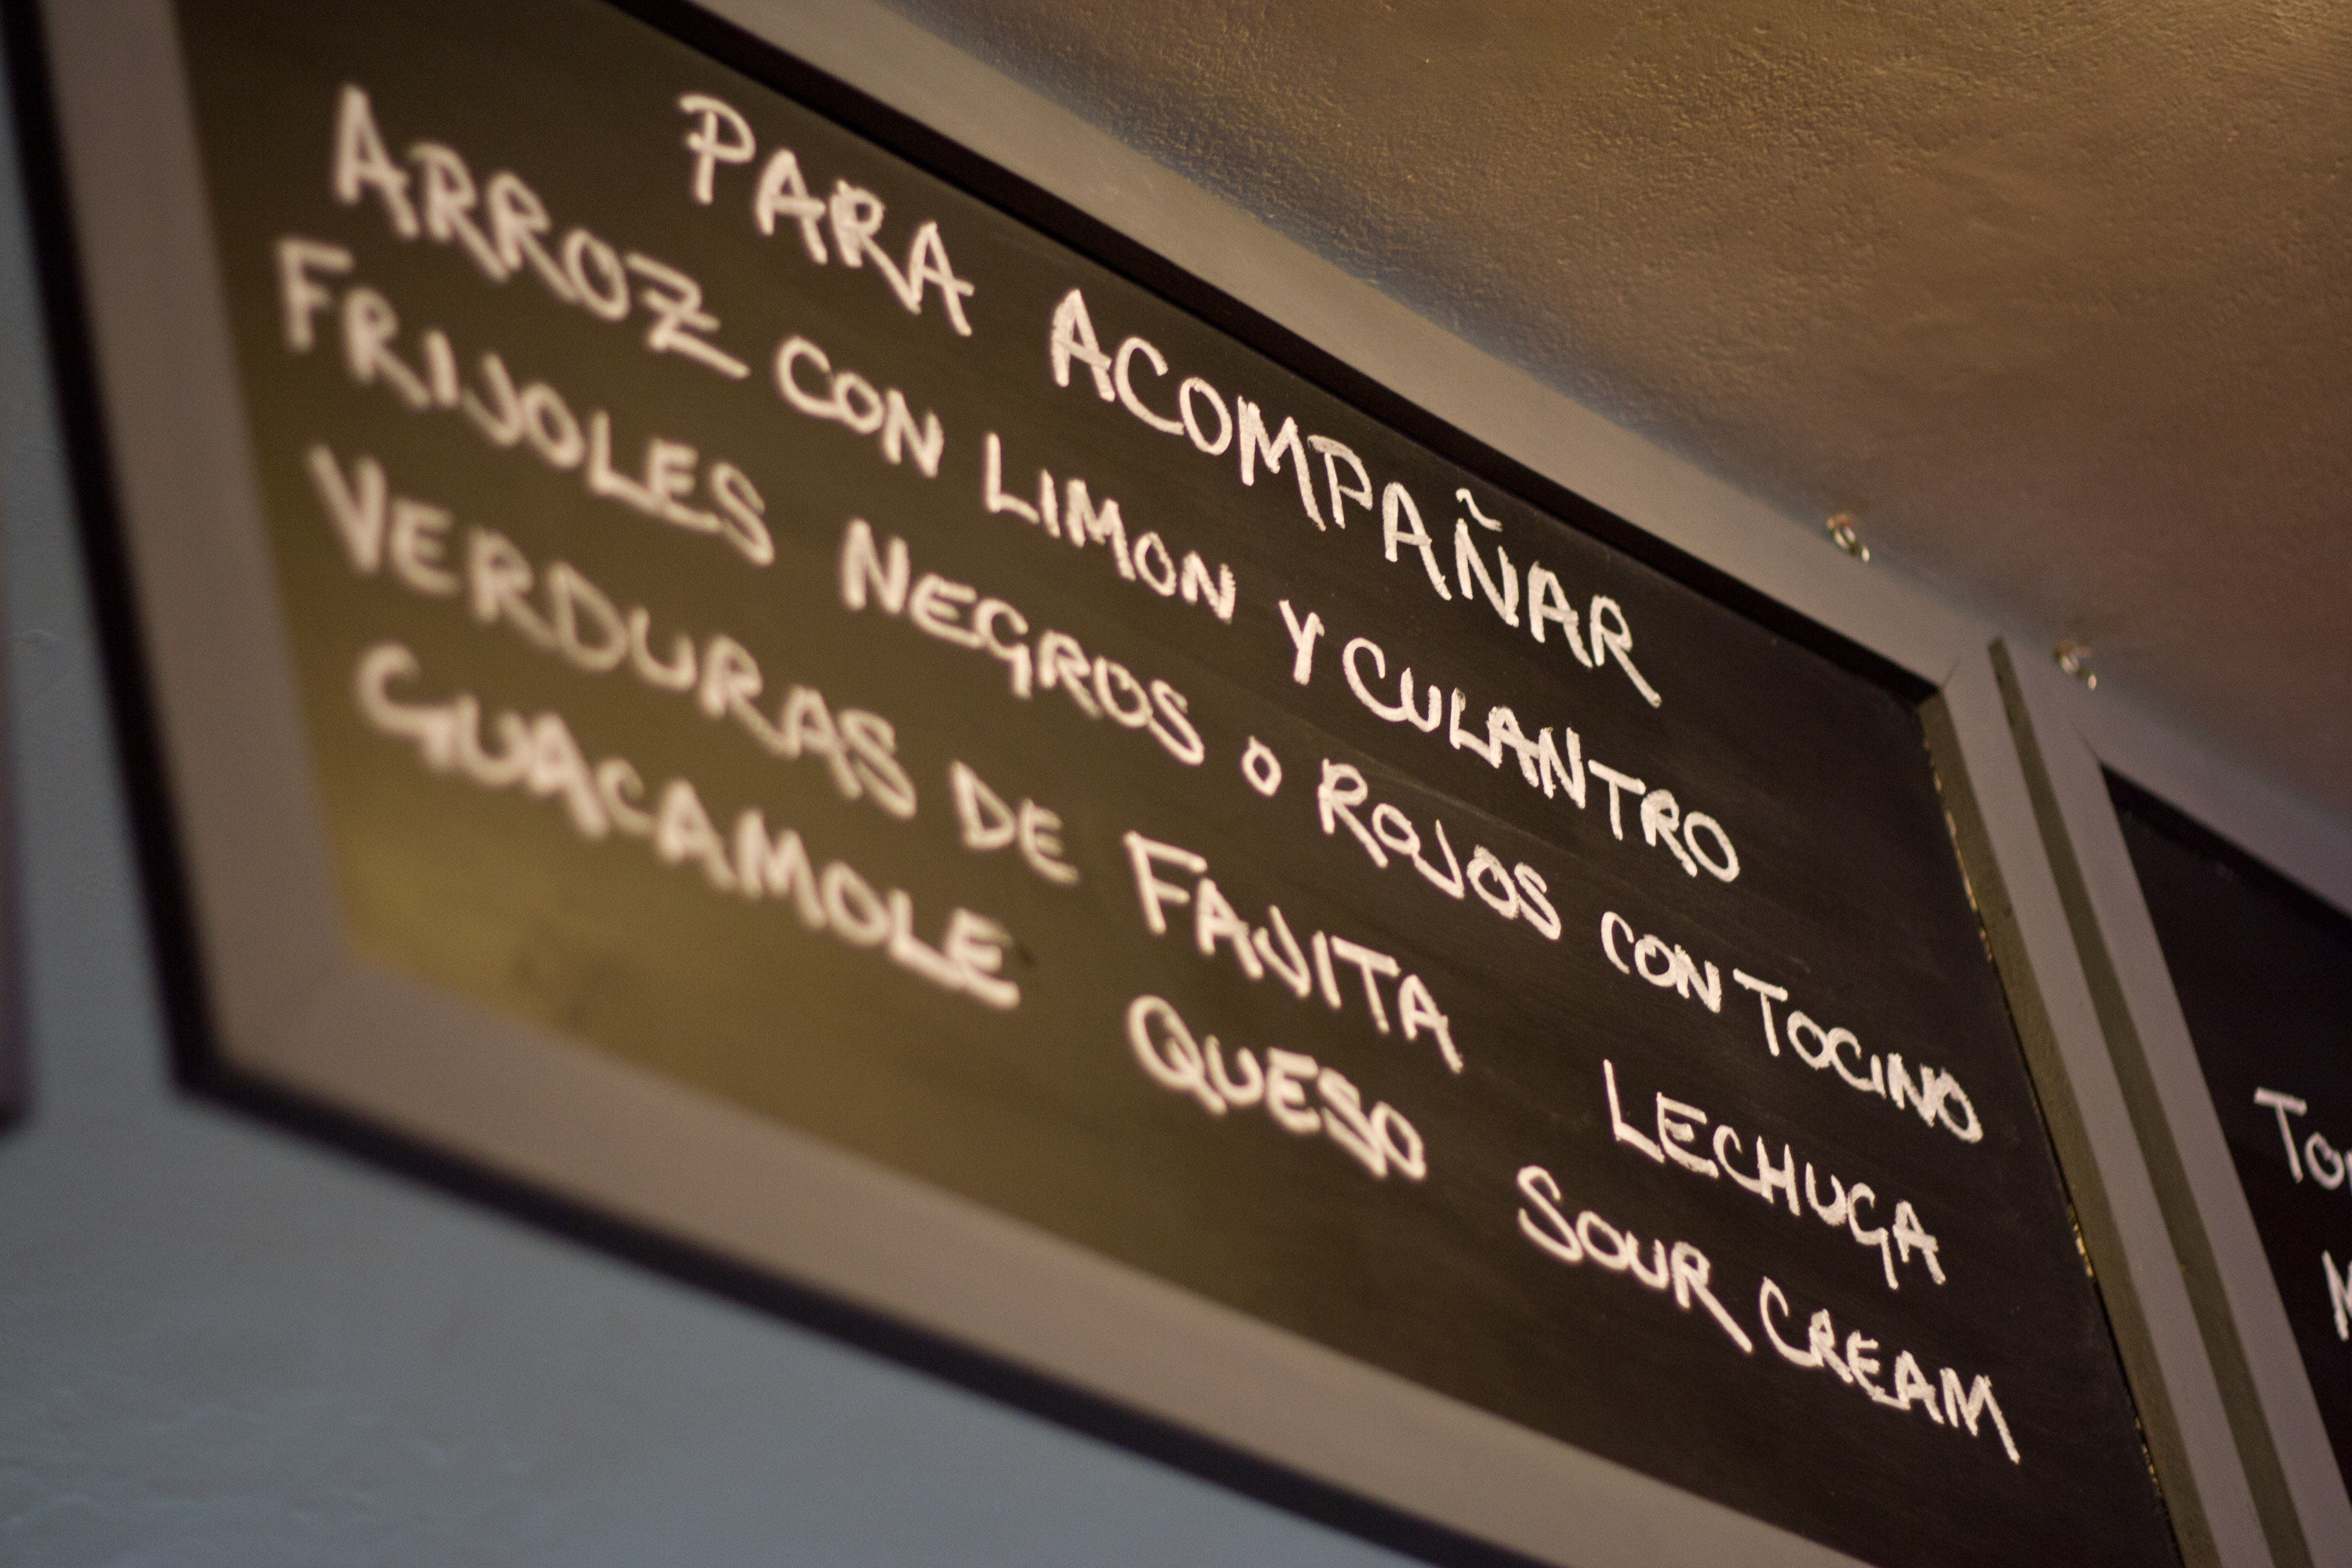 PARA ACOMPAÑAR
ARROZ CON LIMON Y CULANTRO
FRIJOLES NEGROS O ROJOS CON TOCINO
VERDURAS DE FAJITA LECHUGA
GUACAMOLE QUESO SOUR CREAM